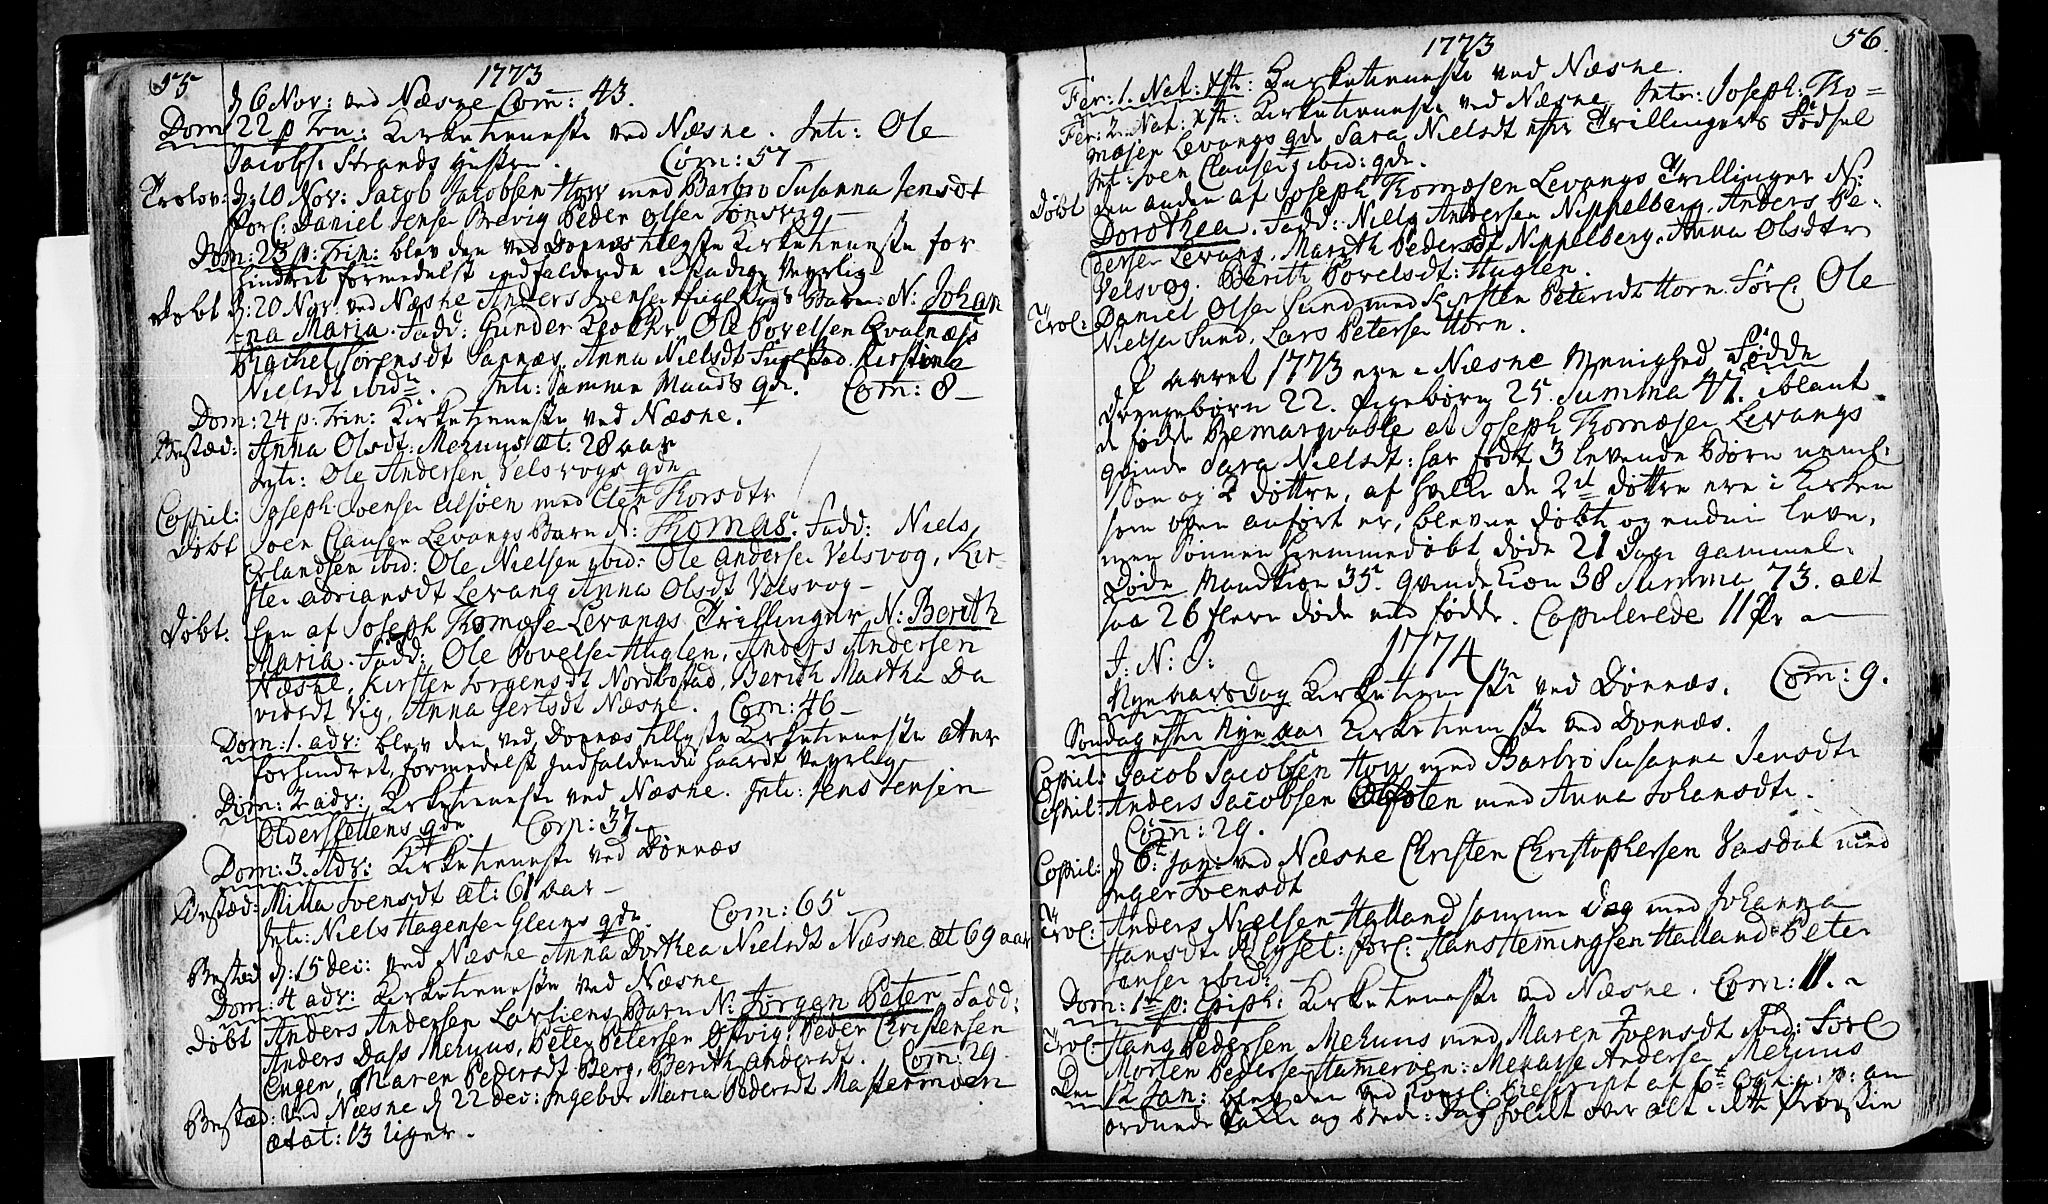 55
1773
d 6 Nov: ved Næsne Com: 43.
Dom 22 p Trin: Kirketieneste ved Næsne. Intr: Ole
Jacobs: Strands Hustru. Com: 57
Trolov: d: 10 Nov: Jacob Jacobsen Hov med Barbro Susanna Jensdt
Forl: Daniel Jensen Brevig Peder Olsen Tønsvig
Dom: 23 p: Trin: blev den ved Dønnæs tillyste Kirketieneste for
hindret formedelst indfaldende Veyrlig
Døbt d: 20 Nov: ved Næsne Anders Ivensen Barn: N: Johan
na Maria. Fadd: Gunder Ole Povelsen Qvalnæss
Rachel Sørensdt Sannæs, Anna Nielsdt Kirstine
Nielsdt ibid. Intr: Samme Mands qde. Com: 8
Dom: 24 p: Trin: Kirketieneste ved Næsne.
Bestæd: Anna Olsdt: Mehuus æt: 28 aar
Intr: Ole Andersen Velsvogs qde
Copul: Joseph Ivensen med Elen Thorsdtr
Døbt Joen Clausen Levangs Barn N: Thomas. Fadd: Niels
Erlandsen ibid: Ole Nielsen ibid: Ole Andersen Velsvog, Kir-
sten Adriansdt Levang Anna Olsdt Velsvog
Døbt. Een af Joseph Thomæsen Levangs Trillinger N: Berith
Maria. Fadd: Ole Povelsen Huglen, Anders Andersen
Næsne, Kirsten Jørgensdt Berith Martha Da
vidsdt Vig, Anna Gertsdt Næsne. Com: 46
Dom: 1. adv: blev den ved Dønnæs tillyste Kirketieneste atter
forhindret, formedelst indfaldende haardt Veyrlig
Dom: 2 adv: Kirketieneste ved Næsne. Intr: Jens Jensen
qde. Com: 37
Dom: 3. Adv: Kirketieneste ved Dønnæs
Bestæd: Milla Ivensdt æt: 61 aar
Intr: Niels Hagensen Gleins qde. Com: 65
Bestæd d: 15 Dec: ved Næsne Anna Dorthea Nielsdt Næsne æt 69 aar
Dom: 4 adv: Kirketieneste ved Næsne
Døbt Anders Andersen Barn N: Jørgen Peter Fadd:
Anders Dass Mehuus, Peter Petersen Peder Christensen
Engen, Maren Pedersdt Berg, Berith Andersdt. Com: 29
Bestæd: ved Næsne d 22 Dec: Ingebor Maria Pedersdt
ætat: 13 Uger.
56.
1773
Fer: 1. Nat: Xsti: Kirketieneste ved Næsne.
Fer: 2. Nat: Xsti: Kirketieneste ved Næsne. Intr: Joseph: Tho-
mæsen Levangs qde Sara Nielsdt efter Trillingers Fødsel
Int: Joen Clausen ibid: qde.
Døbt den anden af Joseph Thomæsen Levangs Trillinger N:
Dorothea. Fadd: Niels Andersen Nippelberg, Anders Pe-
dersen Levang, Marith Pedersdt Nippelberg, Anna Olsdtr
Velsvog. Berith Povelsdt: Huglen.
Trol: Daniel Olsen Sund med Kirsten Petersdt Horn. Forl: Ole
Nielsen Sund, Lars Petersen Horn.
I aaret 1773 ere i Næsne Menighed Fødde
Drengebørn 22. Pigebørn 25. Summa 47. iblant
de fødde Remarquable at Joseph Thomæsen Levangs
qvinde Sara Nielsdt: har født 3 levende Børn neml:
1 Søn og 2 døttre, af hvilke de 2de døttre ere i Kirken
som oven anført er, blevne døbte og endnu leve,
men Sønnen Hiemmedøbt døde 21 Dage gammel.
Døde Mandkiøn 35. Qvindekiøn 38 Summa 73. alt
saa 26 flere døde end fødde. Copulerede 11 Par
J: N: J: 1774
Nyeaarsdag Kirketieneste ved Dønnæs. Com: 9.
Søndag efter Nyeaar Kirketieneste ved Dønnæs.
Copul: Jacob Jacobsen Hov med Barbro Susanna Jensdtr
Copul: Anders Jacobsen med Anna Johansdtr.
Com: 29.
Copul: d 6t Jan: ved Næsne Christen Christophersen med
Inger Ivensdt
Trol: Anders Nielsen Halland samme dag med Johanna
Hansdt forl: Hans Hemingsen Halland Peter
Jensen ibid:
Dom: 1 p: Epiph: Kirketieneste ved Næsne. Com: 11.
Trol: Hans Pedersen Mehuus med Maren Ivensdt ibid: Forl
Morten Pedersen Andersen Mehuus
Den 12 Jan: blev den ved Rescript af 6t an
ordnede og Bede: Dag holdt over alt